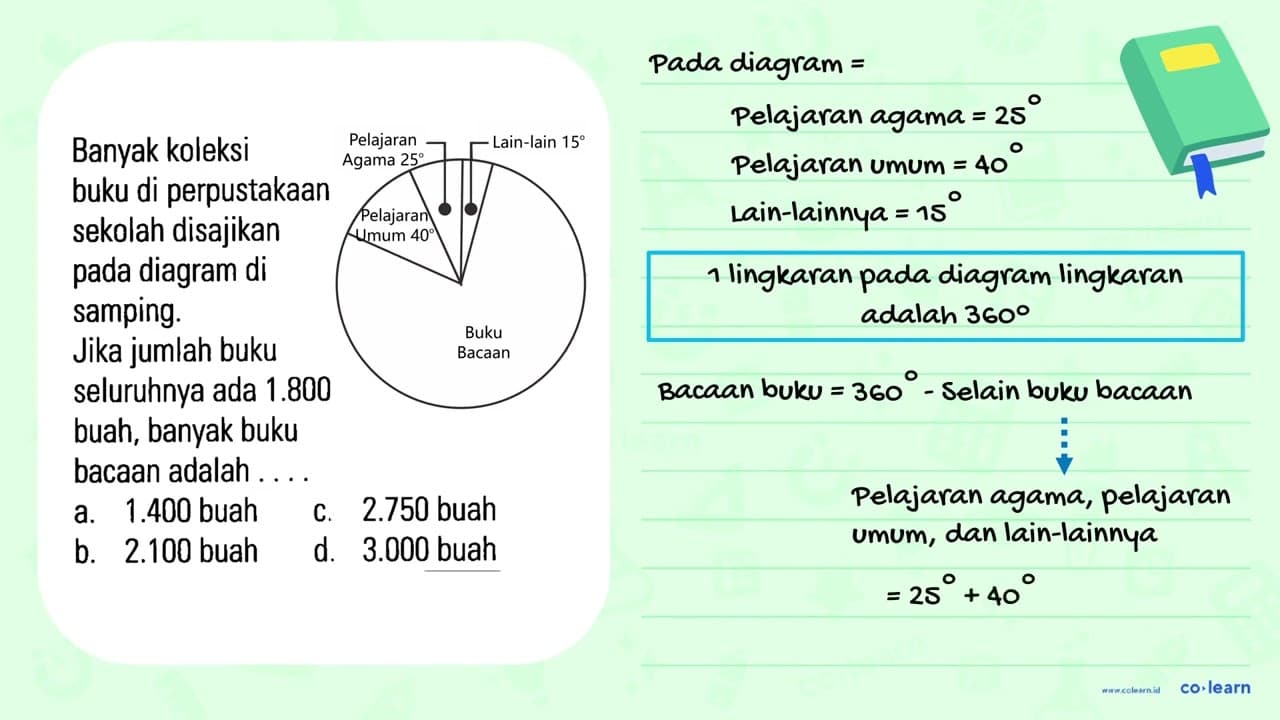 Banyak koleksi
buku di perpustakaan
sekolah disajikan
pada diagram di
samping.
Jika jumlah buku
seluruhnya ada 1.800
buah, banyak buku
bacaan adalah . . . .
a. 1.400 buah c. 2.750 buah
b. 2.100 buah d. 3.000 buah
Pelajaran
Agama 25°
Lain-lain 15°
Pelajaran
Umum 40°
Buku
Bacaan
Pada diagram =
Pelajaran agama = 25°
Pelajaran umum = 40°
Lain-lainnya = 15°
1 lingkaran pada diagram lingkaran
adalah 360°
Bacaan buku = 360° - Selain buku bacaan
Pelajaran agama, pelajaran
umum, dan lain-lainnya
= 25° + 40°
www.colearn.id co·learn